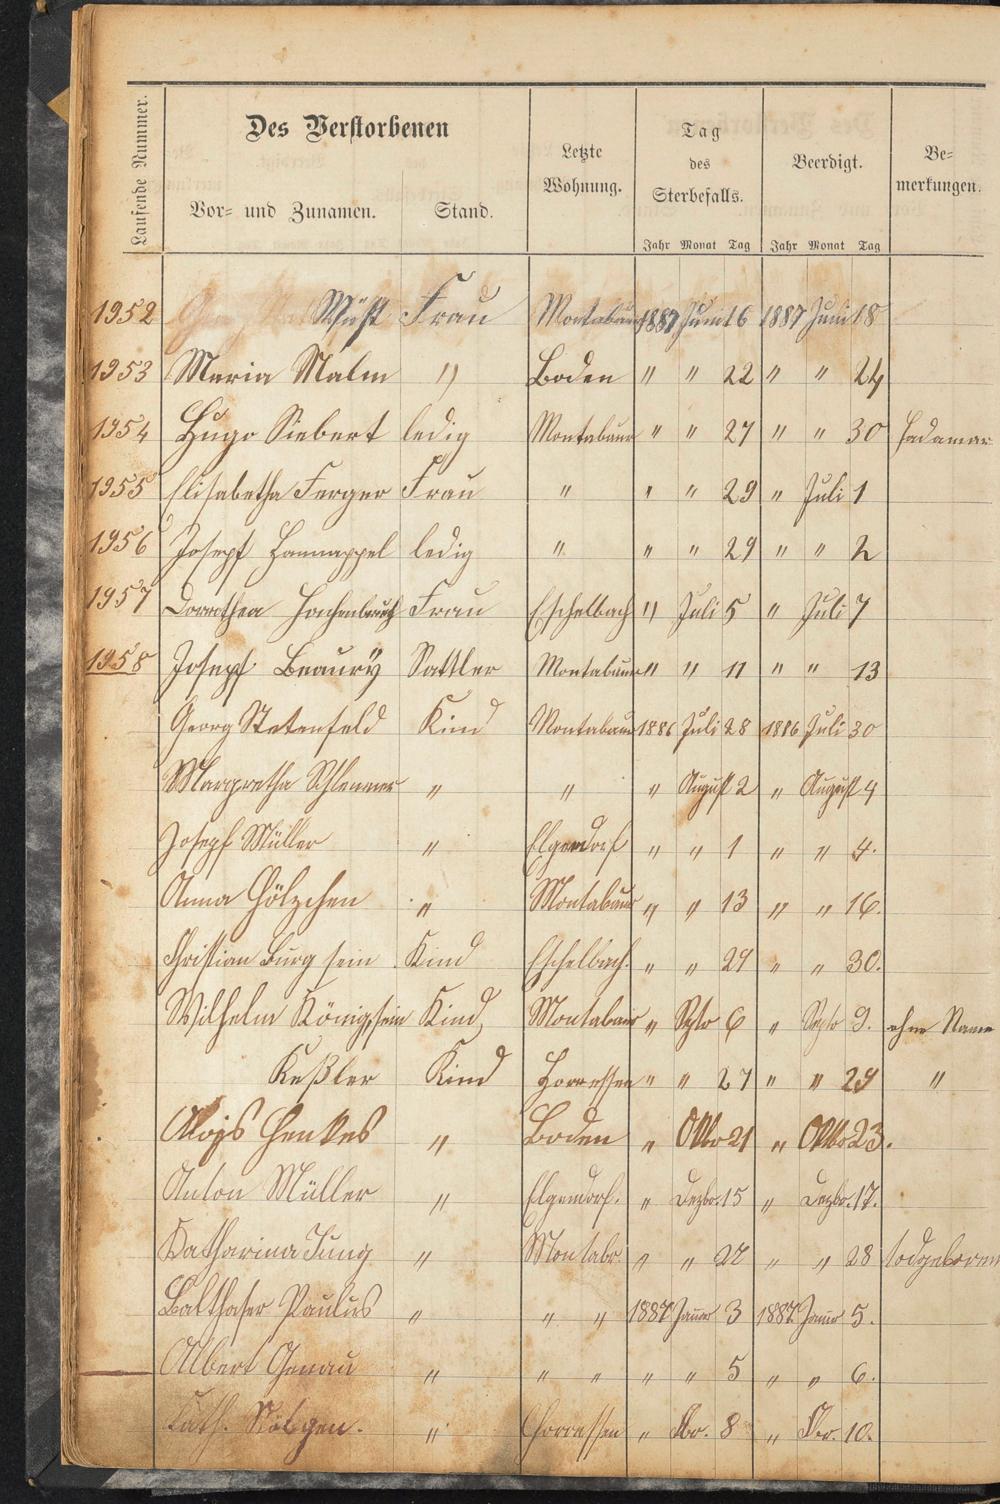 Laufende Nummer. Des Verstorbenen Letzte Wohnung. Tag des Sterbefalls. Beerdigt. Be=merkungen.
Vor= und Zunamen. Stand. Jahr Monat Tag Jahr Monat Tag
1952 Wüst Frau Montabaur 1887 Juni 16 1887 Juni 18
1953 Maria Malm " Boden " " 22 " " 24
1954 Hugo Siebert ledig Montabaur " " 27 " " 30 Hadamar
1955 Elisabetha Ferger Frau " " " 29 " Juli 1
1956 Josepf Hannappel ledig " " " 29 " " 2
1957 Dorothea Frau Eschelbach " Juli 5 " Juli 7
1958 Josepf Beaury Sattler Montabaur " " 11 " " 13
Georg Stetenfeld Kind Montabaur 1886 Juli 28 1886 Juli 30
Margretha Schlemmer " " " August 2 " August 4
Josepf Müller " Elgendorf " " 1 " " 4.
Anna Hölzchen " Montabaur " " 13 " " 16.
Christian Burg sein Kind Eschelbach. " " 29 " " 30.
Wilhelm König, sein Kind Montabaur " Septr 6 " Septr 9. ohne Name
Keßler Kind Horressen " " 27 " " 29 "
Alojs Henkes " Boden " Oktbr 21 " Oktbr 23.
Anton Müller " Elgendorf. " Dezbr. 15 " Dezbr. 17.
Katharina Jung " Montabr. " " 27 " " 28 todgeboren
Balthaser Paulus " " " 1887 Januar 3 1887 Januar 5.
Albert Genau " " " " " 5 " " 6.
Kath. " Horressen " 8 " 10.